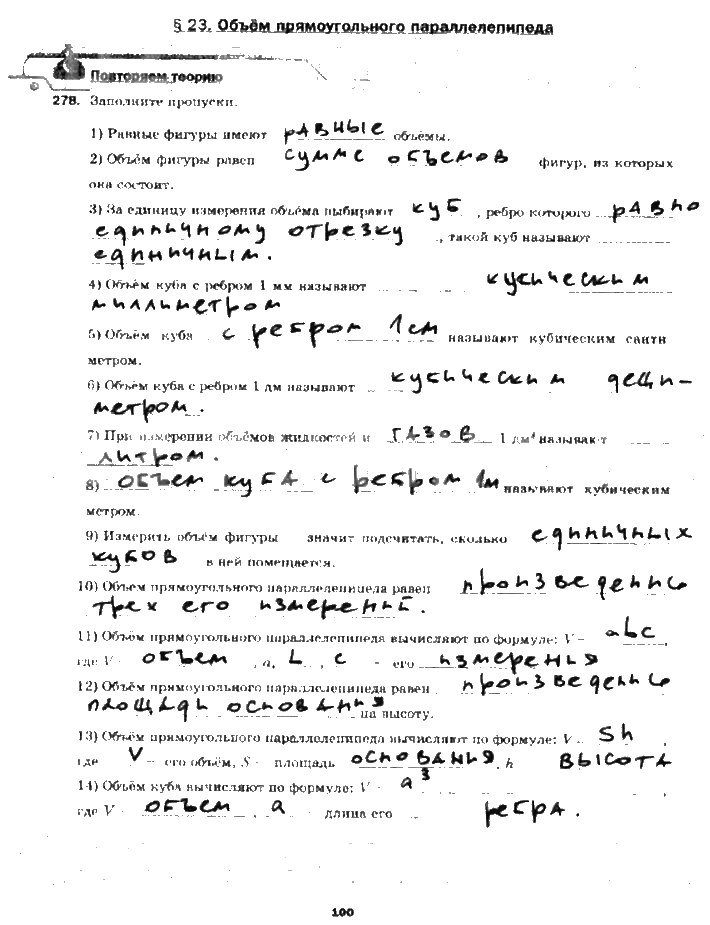 § 23. Объём прямоугольного параллелепипеда
Повторяем теорию
278. Заполните пропуски.
1) Равные фигуры имеют равные объёмы.
2) Объём фигуры равен сумме объемов фигур, из которых
она состоит.
3) За единицу измерения объёма выбирают куб, ребро которого равно
единичному отрезку, такой куб называют
единичным.
4) Объём куба с ребром 1 мм называют кубическим
миллиметром
5) Объём куба с ребром 1 см называют кубическим санти
метром.
6) Объём куба с ребром 1 дм называют кубическим деци-
метром.
7) При измерении объёмов жидкостей и газов 1 дм³ называют
литром.
8) объем куба с ребром 1м называют кубическим
метром.
9) Измерить объём фигуры значит подсчитать, сколько единичных
кубов в ней помещается.
10) Объем прямоугольного параллелепипеда равен произведению
трех его измерений.
11) Объём прямоугольного параллелепипеда вычисляют по формуле: V = abc,
где V объем, a, b, c - его измерения
12) Объём прямоугольного параллелепипеда равен произведению
площади основания на высоту.
13) Объём прямоугольного параллелепипеда вычисляют по формуле: V = Sh
где V – его объём, S – площадь основания, h высота
14) Объём куба вычисляют по формуле: V = a³
где V объем, a длина его ребра.
100